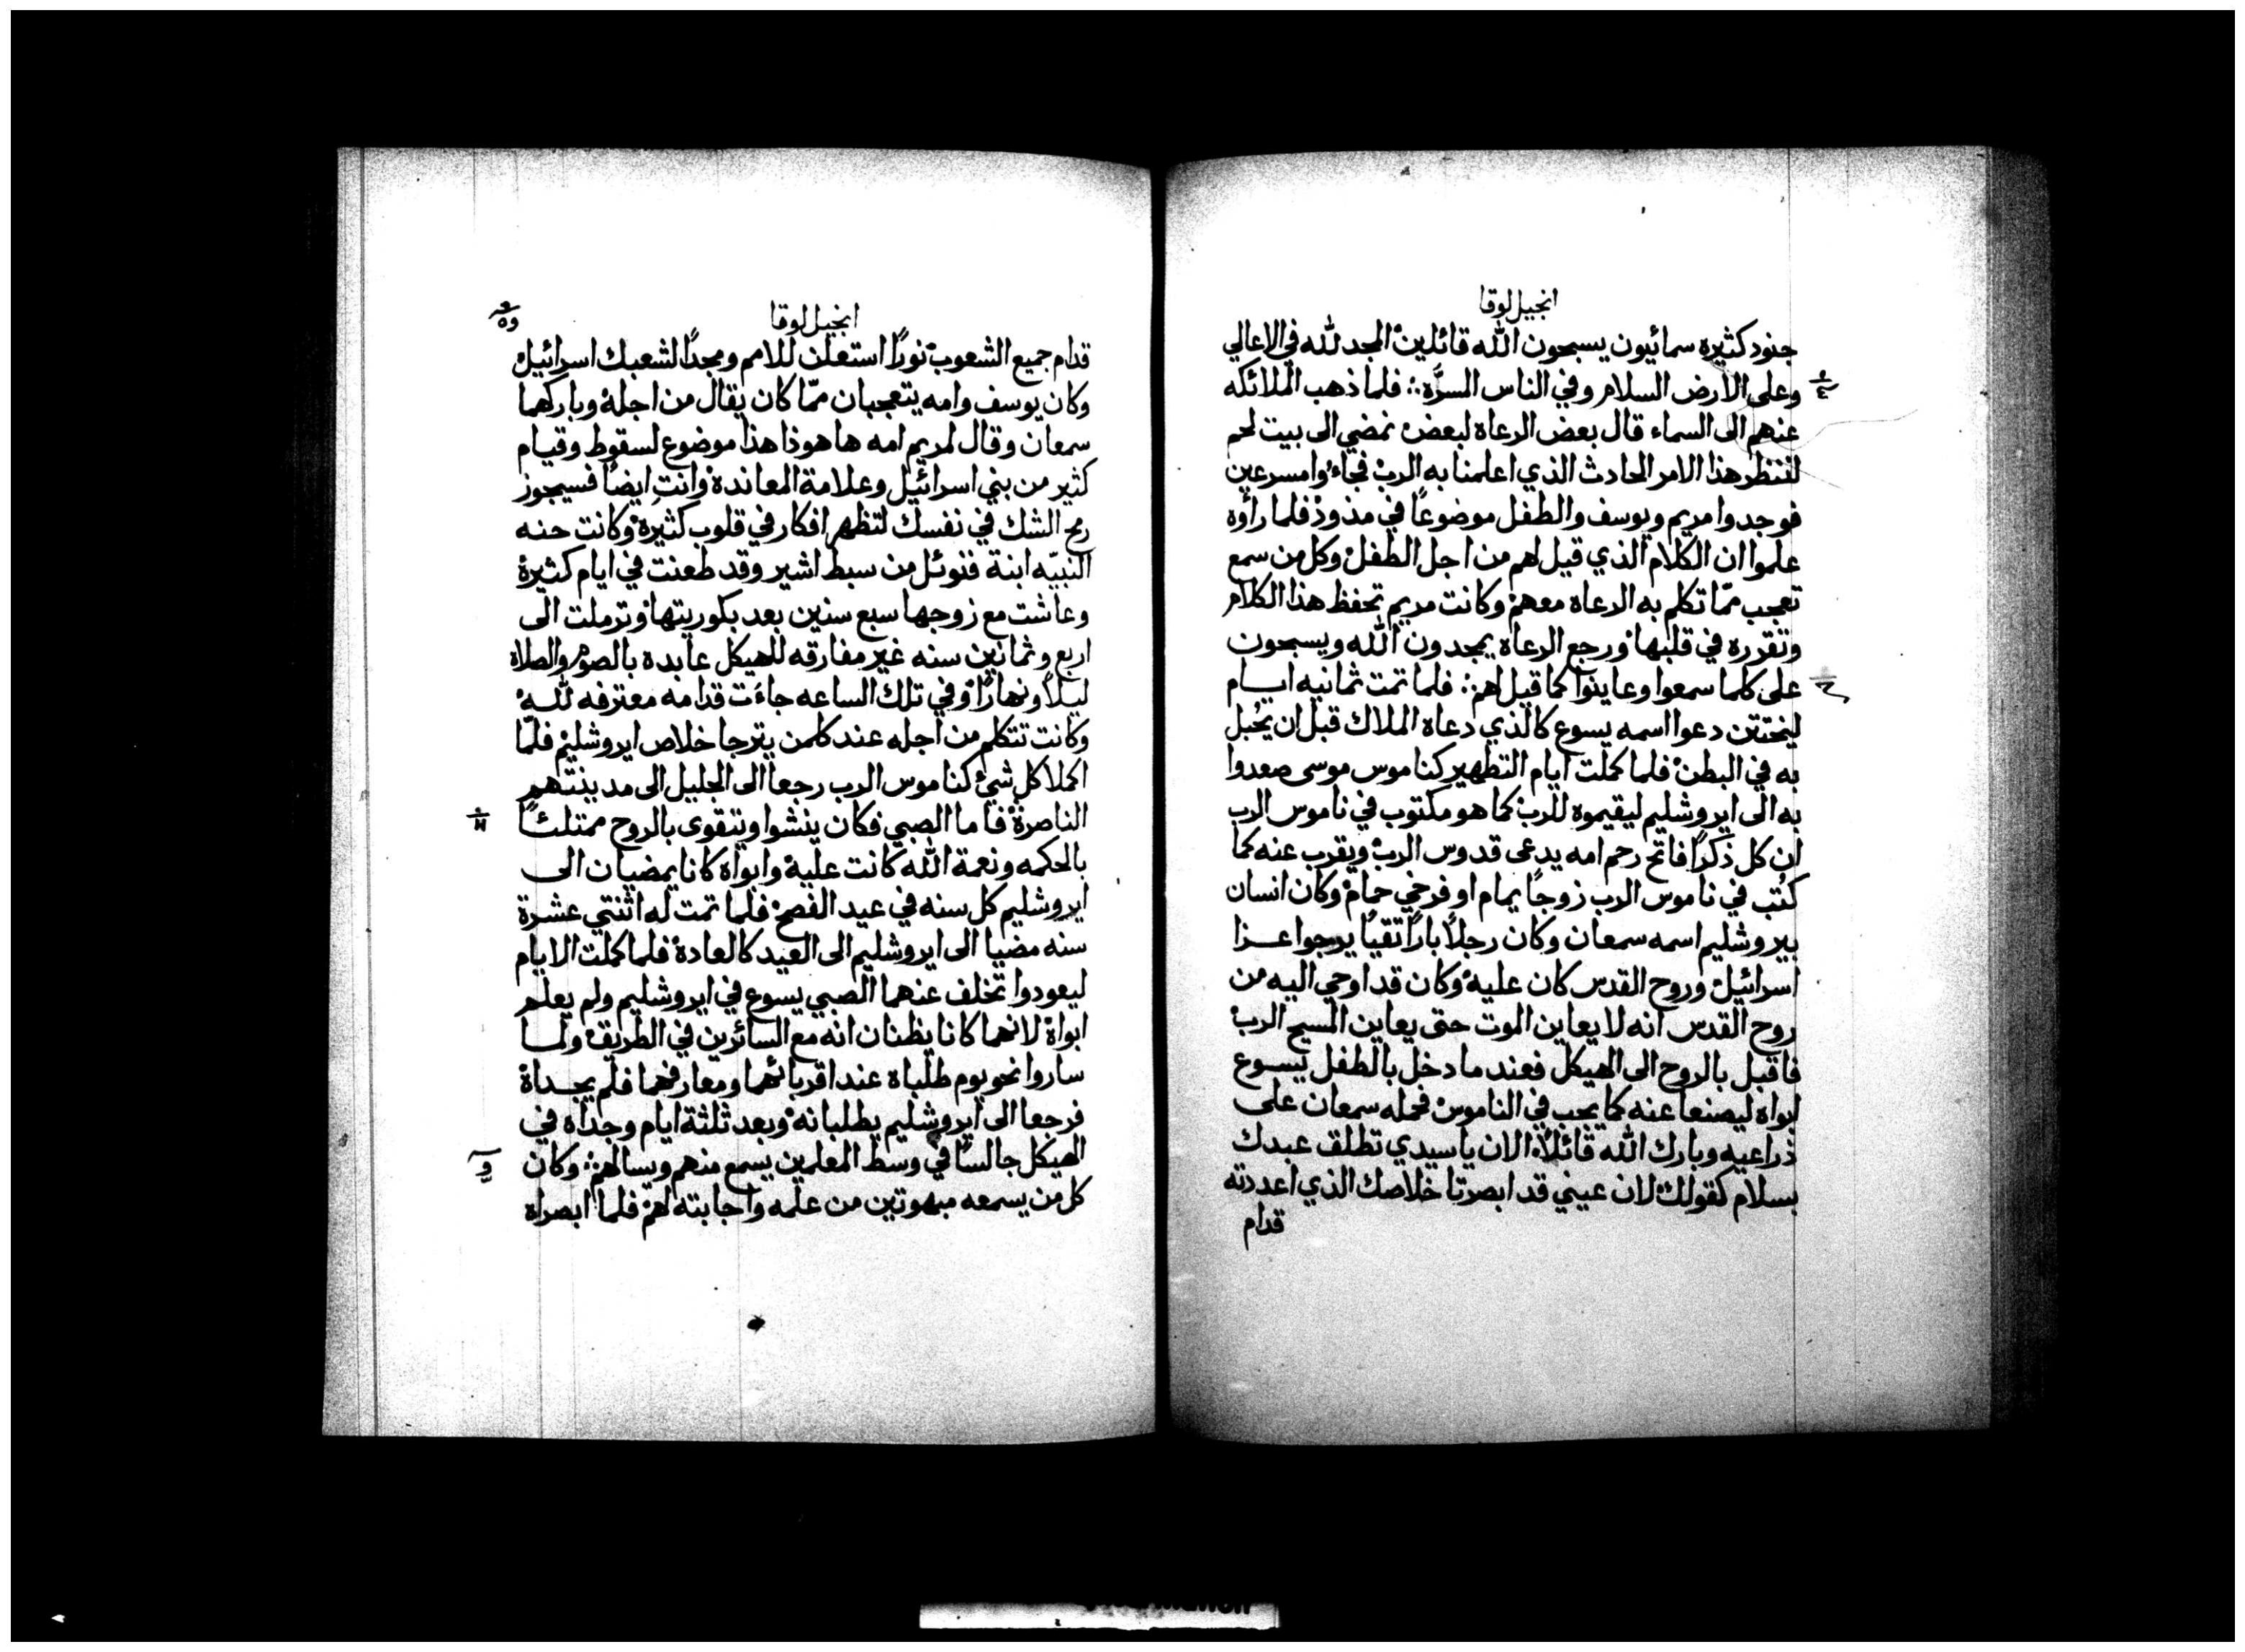 انجيل لوقا
جنود كثيره سمائيون يسبحون الله قائلين المجد لله في الاعالي
وعلى الارض السلام وفي الناس المسرّه ∴ فلما ذهب الملائكه
عنهم الى السماء قال بعض الرعاه لبعض نمضي الى بيت لحم
لننظر هذا الامر الحادث الذي اعلمنا به الرب فجاءوا مسرعين
فوجدوا مريم ويوسف والطفل موضوعاً في مذود فلما رأوه
علموا ان الكلام الذي قيل لهم من اجل الطفل وكل من سمع
تعجب ممّا تكلم به الرعاه معهم وكانت مريم تحفظ هذا الكلام
وتقرره في قلبها ورجع الرعاه يمجدون الله ويسبحون
على كلما سمعوا وعاينوا كما قيل لهم ∴ فلما تمت ثمانيه ايام
ليختتن دعوا اسمه يسوع كالذي دعاه الملاك قبل ان يحُبل
به في البطن فلما كملت ايام التطهير كناموس موسى صعدوا
به الى ايروشليم ليقيموه للرب كما هو مكتوب في ناموس الرب
ان كل ذكراً فاتح رحم امه يدعى قدوس الرب ويقرب عنه كما
كُتب في ناموس الرب زوجاً يمام او فرخي حمام وكان انسان
بيروشليم اسمه سمعان وكان رجلاً باراً تقياً يرجوا عزا
اسرائيل وروح القدس كان عليه وكان قد اوحي اليه من
روح القدس انه لا يعاين الموت حتى يعاين المسيح الرب
فاقبل بالروح الى الهيكل فعند ما دخل بالطفل يسوع
ابواه ليصنعا عنه كما يجب في الناموس فحمله سمعان على
ذراعيه وبارك الله قائلاً الان يا سيدي تطلق عبدك
بسلام كقولك لان عيني قد ابصرتا خلاصك الذي اعددته
قدام
انجيل لوقا
قدام جميع الشعوب نوراً استعلن للامم ومجداً لشعبك اسرائيل
وكان يوسف وامه يتعجبان ممّا كان يقال من اجله وباركهما
سمعان وقال لمريم امه ها هوذا هذا موضوع لسقوط وقيام
كثير من بني اسرائيل وعلامة المعانده وانتِ ايضاً فسيجوز
رمح الشك في نفسك لتظهر افكار في قلوب كثيرة وكانت حنه
النبيّه ابنة فنوئل من سبط اشير وقد طعنت في ايام كثيرة
وعاشت مع زوجها سبع سنين بعد بكوريتها وترملت الى
اربع وثمانين سنه غير مفارقه للهيكل عابده بالصوم والصلاه
ليلاً ونهاراً وفي تلك الساعه جاءَت قدامه معترفه لله
وكانت تتكلم من اجله عند كلمن يترجا خلاص ايروشليم فلمّا
اكملا كل شيء كناموس الرب رجعا الى الجليل الى مدينتهم
الناصرة فاما الصبي فكان ينشوا ويتقوى بالروح ممتلئاً
بالحكمه ونعمة الله كانت عليه وابواة كانا يمضيان الى
ايروشليم كل سنه في عيد الفصح فلما تمت له اثنتي عشرة
سنه مضيا الى ايروشليم الى العيد كالعادة فلما كملت الايام
ليعودوا تخلف عنهما الصبي يسوع في ايروشليم ولم يعلم
ابواة لانهما كانا يظنان انه مع السائرين في الطريق ولما
ساروا نحو يوم طلباه عند اقربائهما ومعارفهما فلم يجداة
فرجعا الى ايروشليم يطلبانه وبعد ثلثة ايام وجداه في
الهيكل جالساً في وسط المعلمين يسمع منهم ويسالهم ∴ وكان
كل من يسمعه مبهوتين من علمه واجابته لهم فلما ابصراه